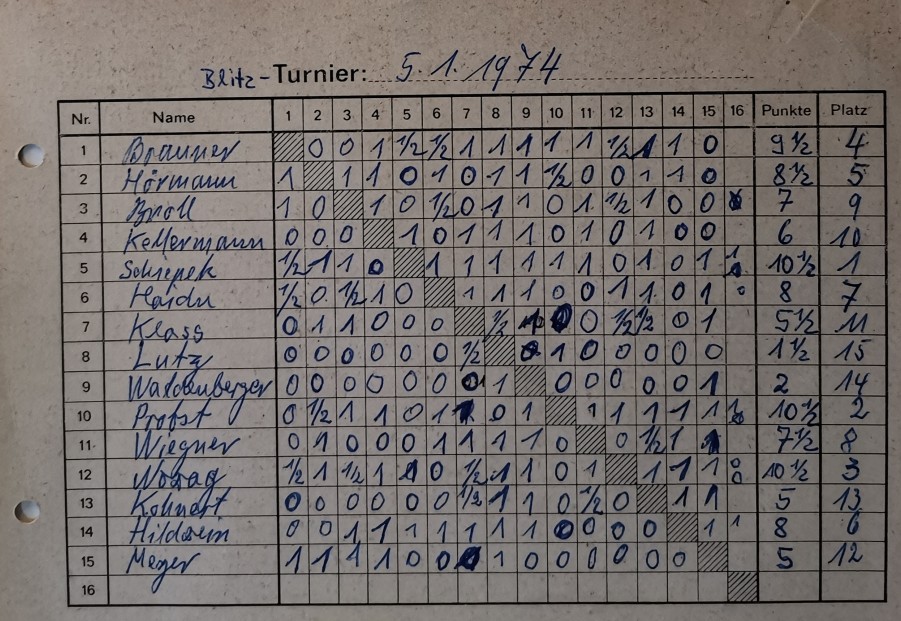 Blitz-Turnier: 5.1.1974
Nr. Name 1 2 3 4 5 6 7 8 9 10 11 12 13 14 15 16 Punkte Platz
1 Brauner 0 0 1 1/2 1/2 1 1 1 1 1 1/2 1 1 0 9 1/2 4
2 Hörmann 1 1 1 0 1 0 1 1 1/2 0 0 1 1 0 8 1/2 5
3 Broll 1 0 1 0 1/2 0 1 1 0 1 1/2 1 0 0 7 9
4 Kellermann 0 0 0 1 0 1 1 1 0 1 0 1 0 0 6 10
5 Schiepek 1/2 1 1 0 1 1 1 1 1 1 0 1 0 1 10 1/2 1
6 Haidu 1/2 0 1/2 1 0 1 1 1 0 0 1 1 0 1 0 8 7
7 Klass 0 1 1 0 0 0 1/2 0 0 1/2 1/2 0 1 5 1/2 11
8 Lutz 0 0 0 0 0 0 1/2 0 1 0 0 0 0 0 1 1/2 15
9 Waldenberger 0 0 0 0 0 0 1 0 0 0 0 0 1 2 14
10 Probst 0 1/2 1 1 0 1 1 0 1 1 1 1 1 1 10 1/2 2
11 Wiegner 0 1 0 0 0 1 1 1 1 0 0 1/2 1 1 7 1/2 8
12 1/2 1 1/2 1 1 0 1/2 1 1 0 1 1 1 1 0 0 10 1/2 3
13 Kohnert 0 0 0 0 0 0 1/2 1 1 0 1/2 0 1 1 5 13
14 0 0 1 1 1 1 1 1 1 0 0 0 0 1 1 8 6
15 Meyer 1 1 1 1 0 0 1 0 0 0 0 0 0 5 12
16